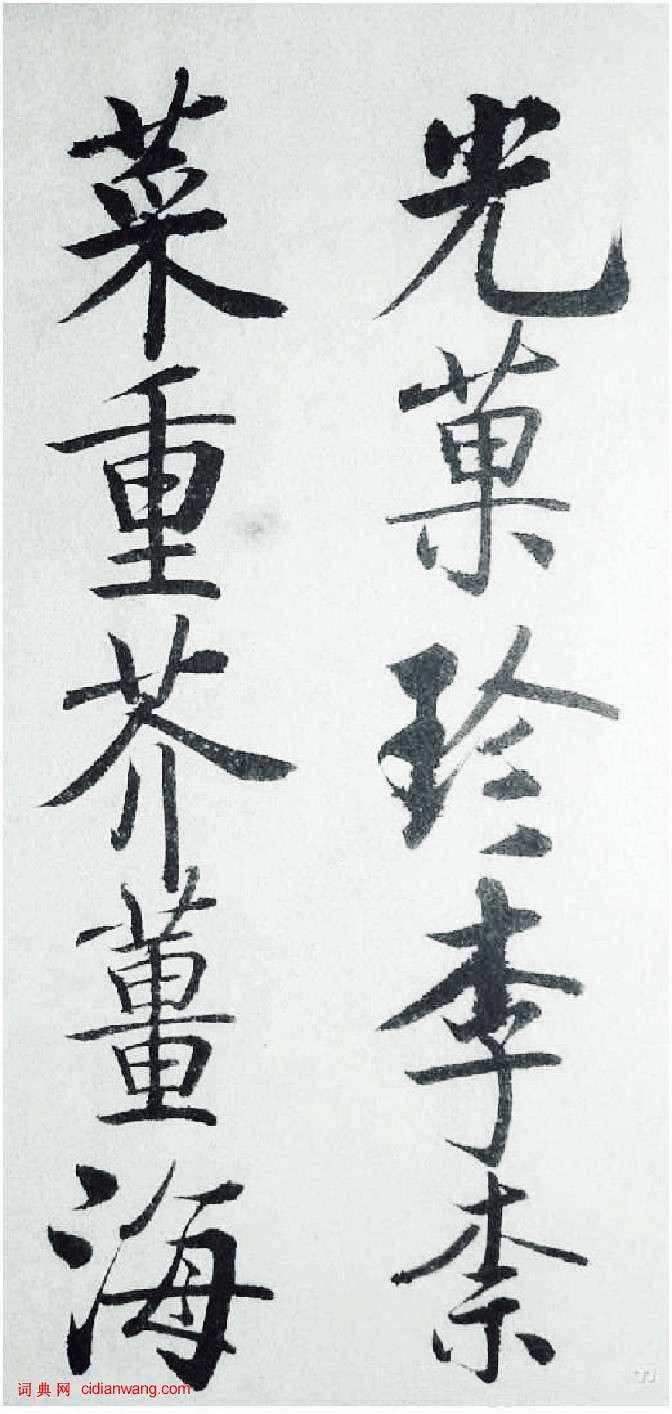 光菓珍李柰
菜重芥薑海
词典网 cidianwang.com